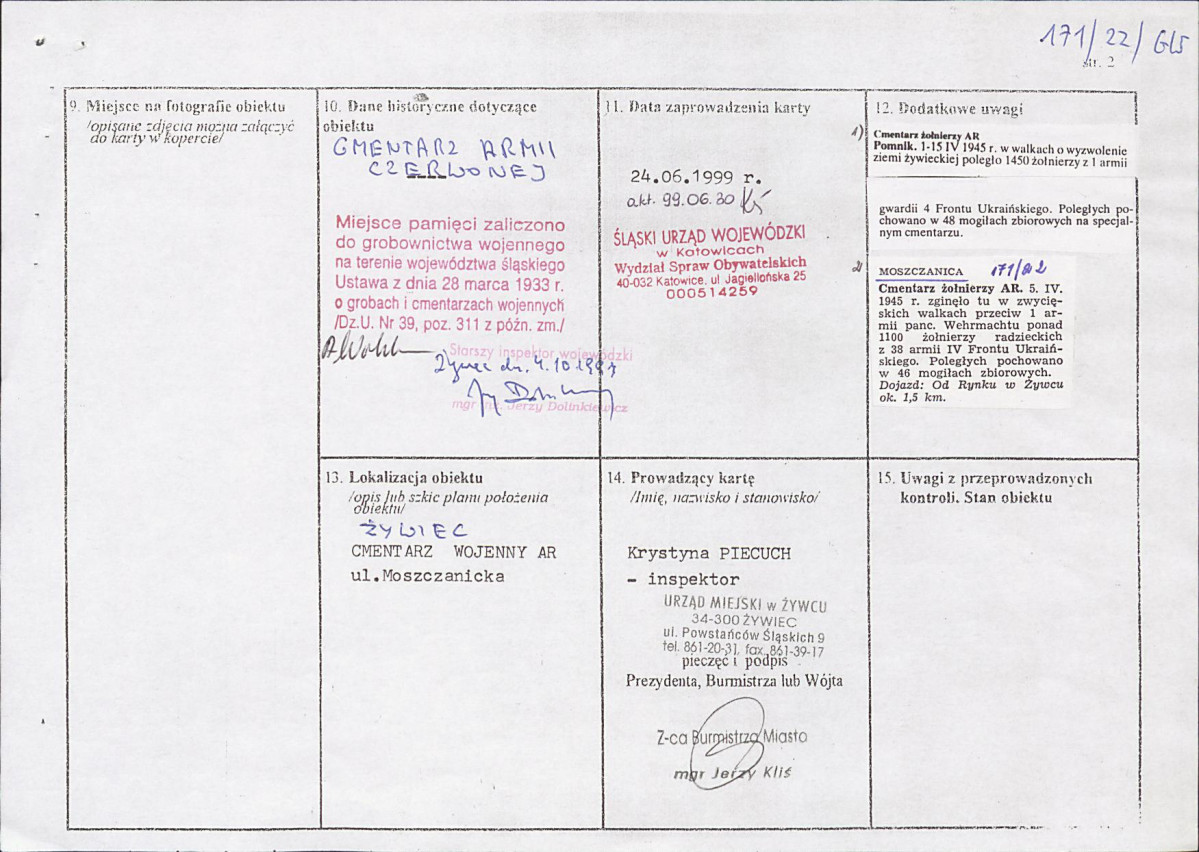 171/22/GLS
str. 2
9. Miejsce na fotografie obiektu
/opisane zdjęcia można załączyć
do karty w kopercie/
10. Dane historyczne dotyczące
obiektu
CMENTARZ ARMII
CZERWONEJ
Miejsce pamięci zaliczono
do grobownictwa wojennego
na terenie województwa śląskiego
Ustawa z dnia 28 marca 1933 r.
o grobach i cmentarzach wojennych
/Dz.U. Nr 39, poz. 311 z późn. zm./
Starszy inspektor wojewódzki
Żywiec dn. 4.10.1997
mgr inż. Jerzy Dolinkiewicz
11. Data zaprowadzenia karty
24.06.1999 r.
akt. 99.06.30
ŚLĄSKI URZĄD WOJEWÓDZKI
w Katowicach
Wydział Spraw Obywatelskich
40-032 Katowice, ul Jagiellońska 25
000514259
12. Dodatkowe uwagi
1)
Cmentarz żołnierzy AR
Pomnik. 1-15 IV 1945 r. w walkach o wyzwolenie
ziemi żywieckiej poległo 1450 żołnierzy z 1 armii
gwardii 4 Frontu Ukraińskiego. Poległych po-
chowano w 48 mogiłach zbiorowych na specjal-
nym cmentarzu.
2)
MOSZCZANICA 171/22
Cmentarz żołnierzy AR. 5. IV.
1945 r. zginęło tu w zwycię-
skich walkach przeciw 1 ar-
mii panc. Wehrmachtu ponad
1100 żołnierzy radzieckich
z 38 armii IV Frontu Ukraiń-
skiego. Poległych pochowano
w 46 mogiłach zbiorowych.
Dojazd: Od Rynku w Żywcu
ok. 1,5 km.
13. Lokalizacja obiektu
/opis lub szkic planu położenia
obiektu/
ŻYWIEC
CMENTARZ WOJENNY AR
ul.Moszczanicka
14. Prowadzący kartę
/Imię, nazwisko i stanowisko/
Krystyna PIECUCH
- inspektor
URZĄD MIEJSKI w ŻYWCU
34-300 ŻYWIEC
ul. Powstańców Śląskich 9
tel. 861-20-31, fax 861-39-17
pieczęć i podpis
Prezydenta, Burmistrza lub Wójta
Z-ca Burmistrza Miasta
mgr Jerzy Kliś
15. Uwagi z przeprowadzonych
kontroli. Stan obiektu